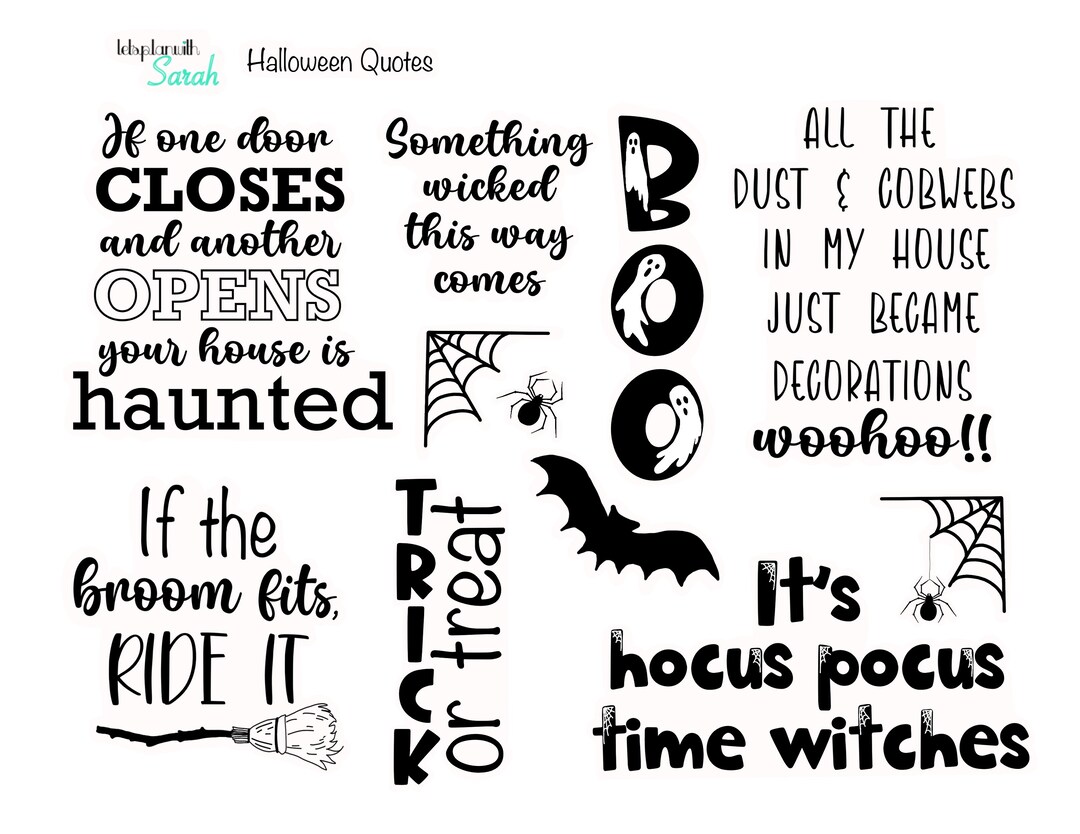 let's plan with
Sarah
Halloween Quotes
If one door
CLOSES
and another
OPENS
your house is
haunted
Something
wicked
this way
comes
BOO
ALL THE
DUST & COBWEBS
IN MY HOUSE
JUST BECAME
DECORATIONS
woohoo!!
If the
broom fits,
RIDE IT
TRICK
or treat
It's
hocus pocus
time witches